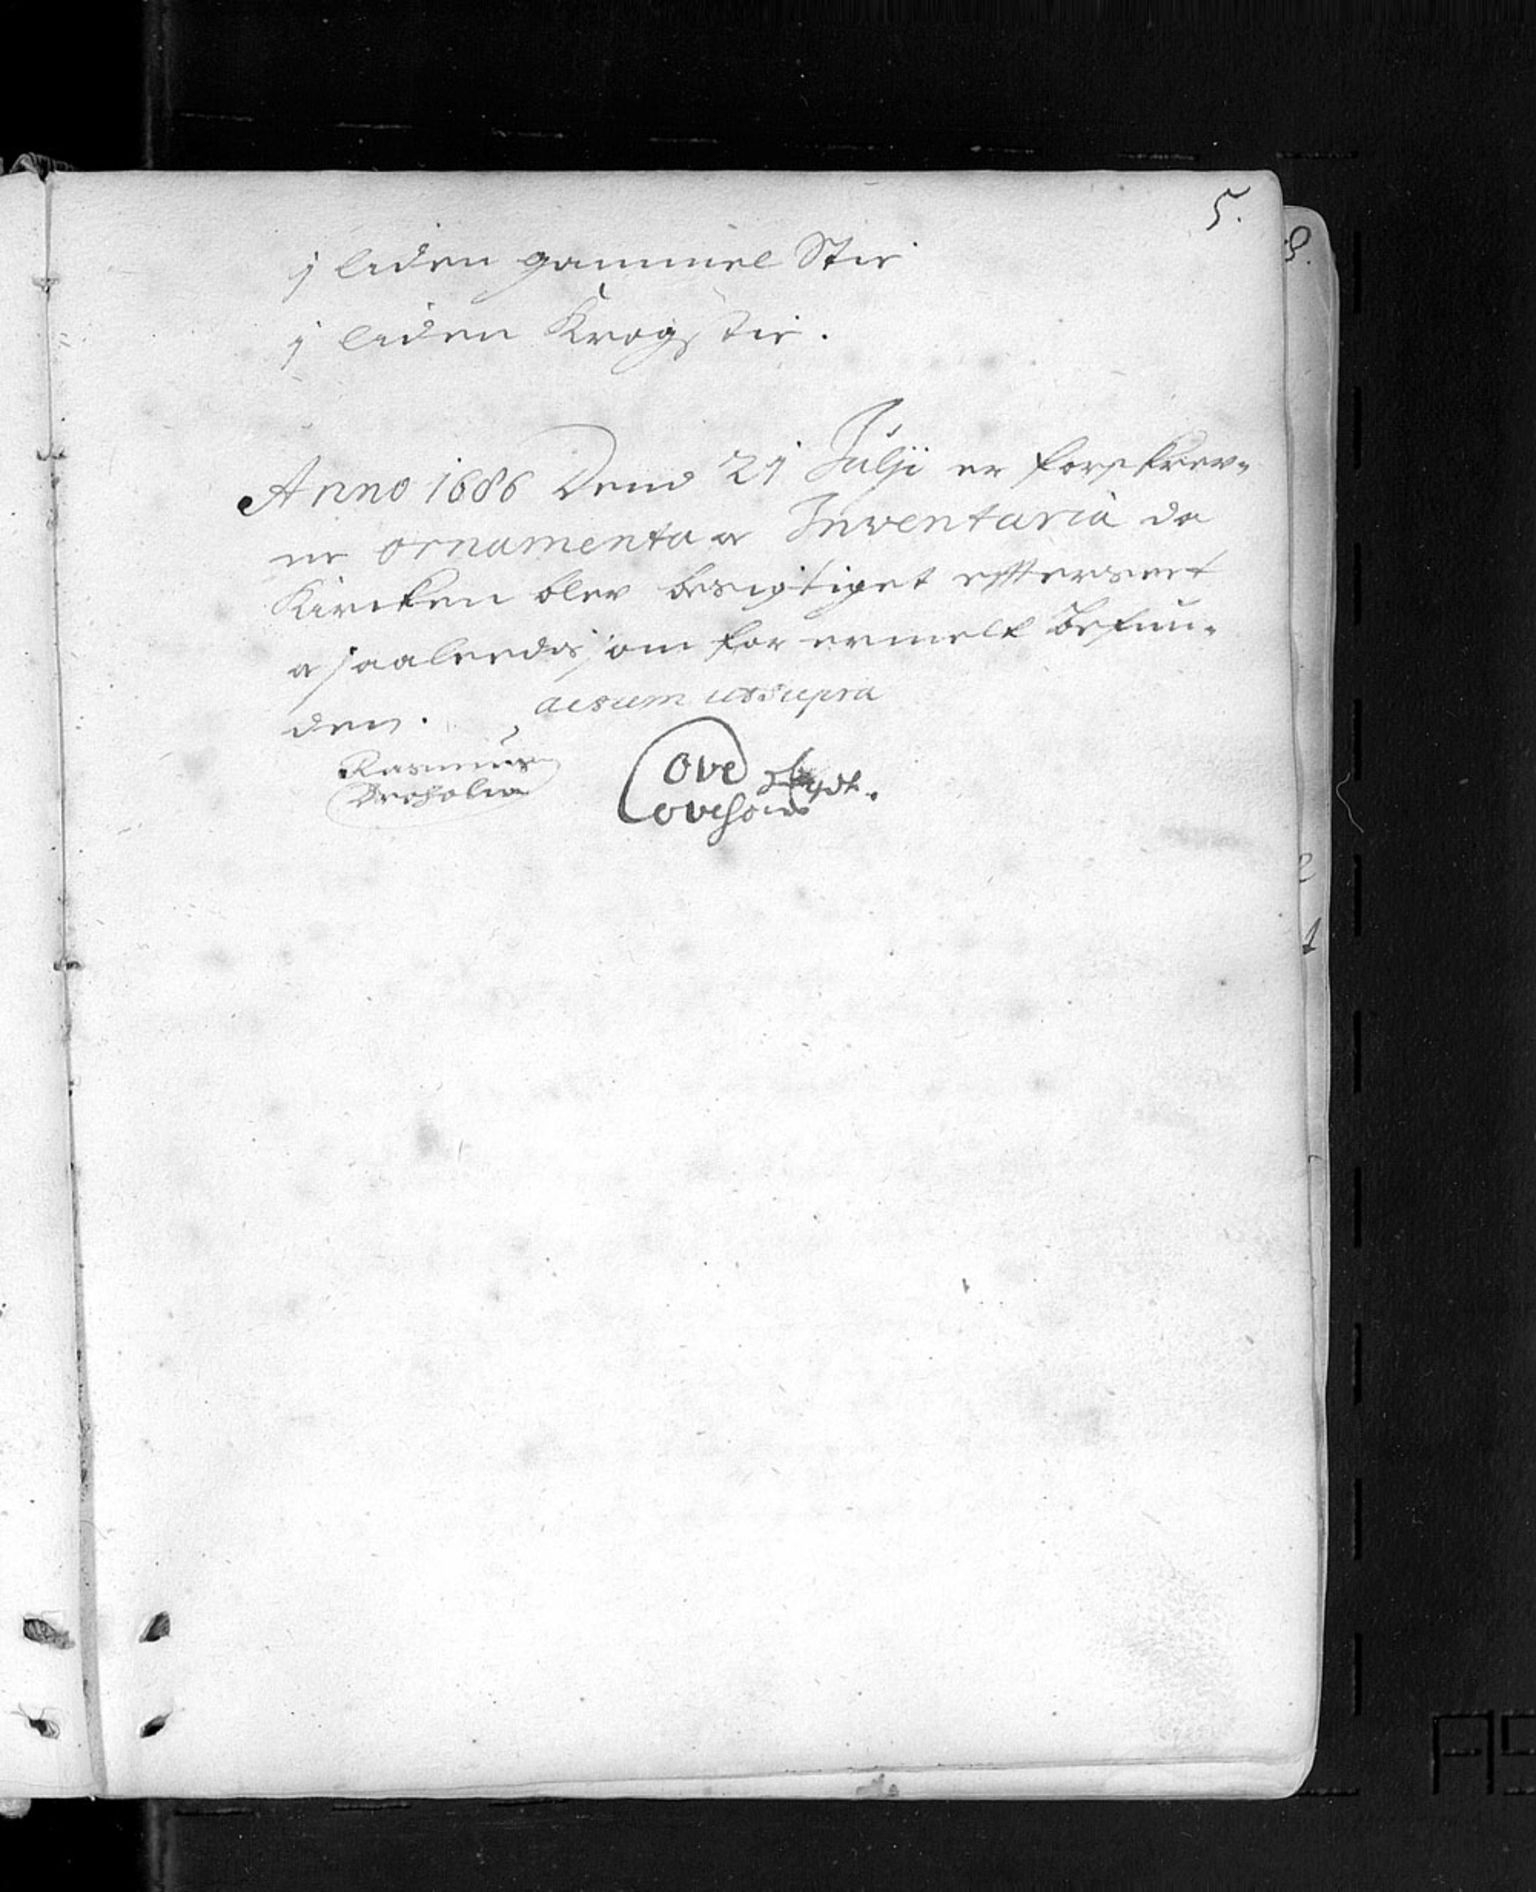 5.
j liden gammel Stie
j liden Krogstie.
Anno 1686 Dend 21 Julji er forskrev-
ne ornamenta a Inventaria da
Kircken blev besigtiget effterseet
a saaleedis som for ermelt befun-
den.
actum ut supra
Rasmus
Ove
Ovesøn